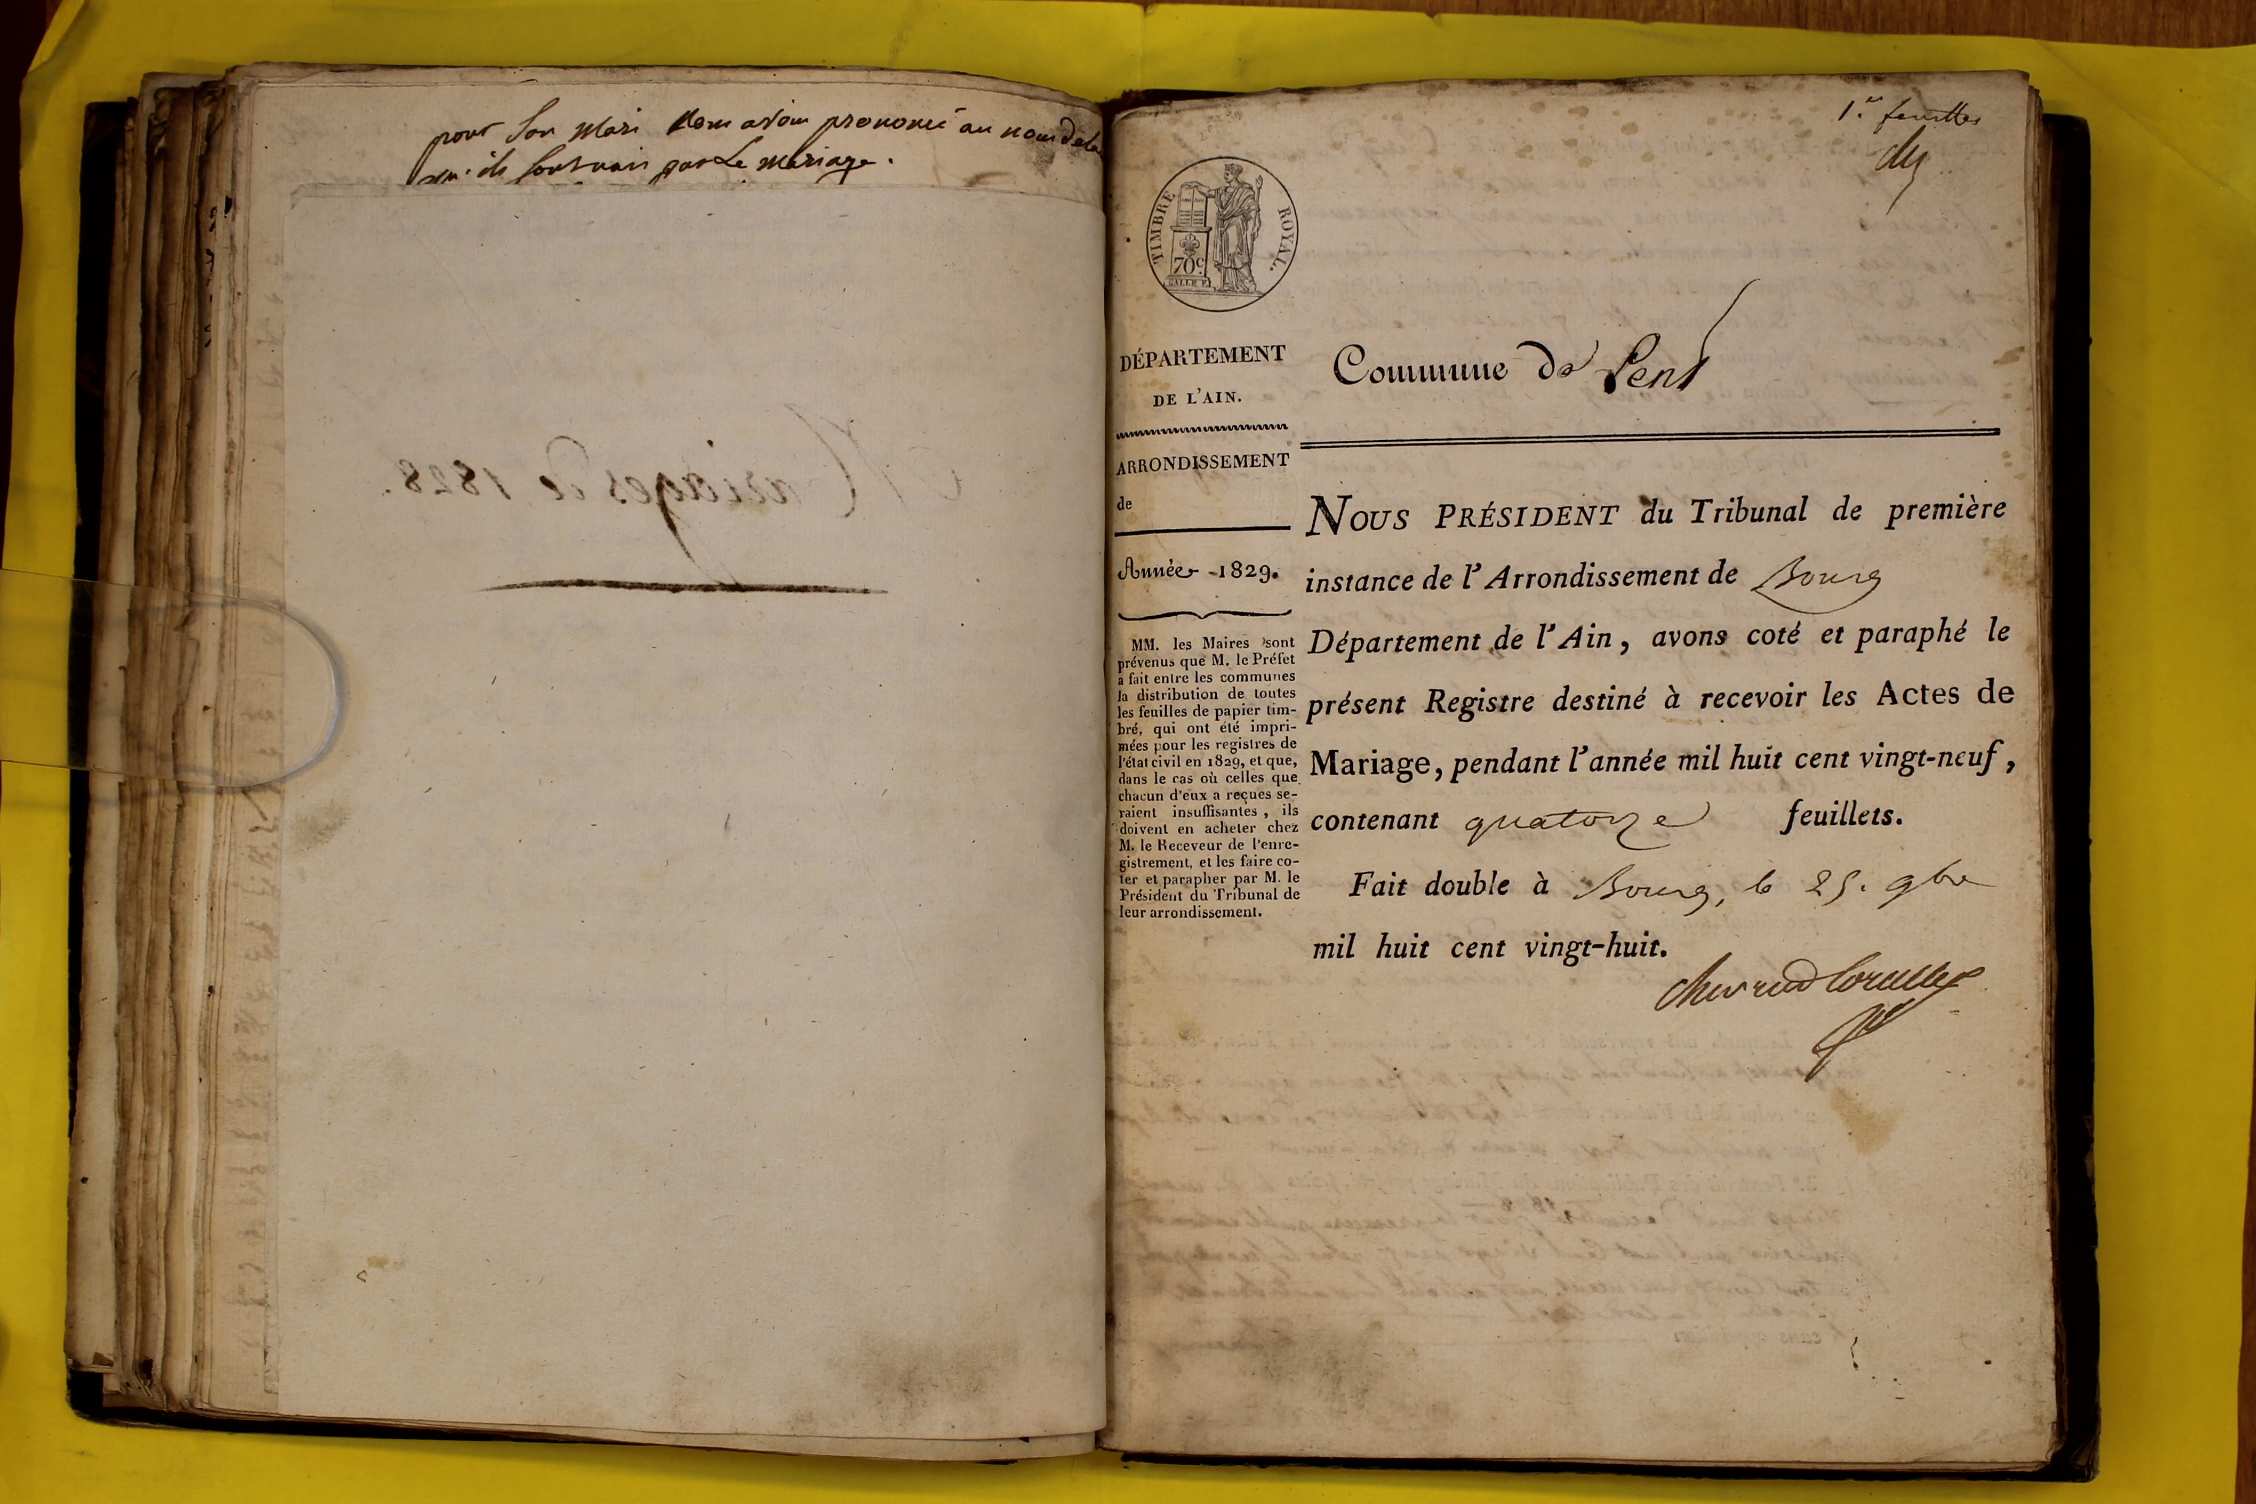 pour son mari nous avons prononcé au nom de la
qu'ils sont unis par Le mariage.
Mariages de 1828.
1.er feuillet
TIMBRE ROYAL.
70c
GALLE F.
DÉPARTEMENT
DE L'AIN.
ARRONDISSEMENT
de
Année 1829.
MM. les Maires sont
prévenus que M. le Préfet
a fait entre les communes
la distribution de toutes
les feuilles de papier tim-
bré, qui ont été impri-
mées pour les registres de
l'état civil en 1829, et que,
dans le cas où celles que
chacun d'eux a reçues se-
raient insuffisantes, ils
doivent en acheter chez
M. le Receveur de l'enre-
gistrement, et les faire co-
ter et parapher par M. le
Président du Tribunal de
leur arrondissement.
Commune de
NOUS PRÉSIDENT du Tribunal de première
instance de l'Arrondissement de Bourg
Département de l'Ain, avons coté et paraphé le
présent Registre destiné à recevoir les Actes de
Mariage, pendant l'année mil huit cent vingt-neuf,
contenant quatorze feuillets.
Fait double à Bourg, le 25. 9bre
mil huit cent vingt-huit.